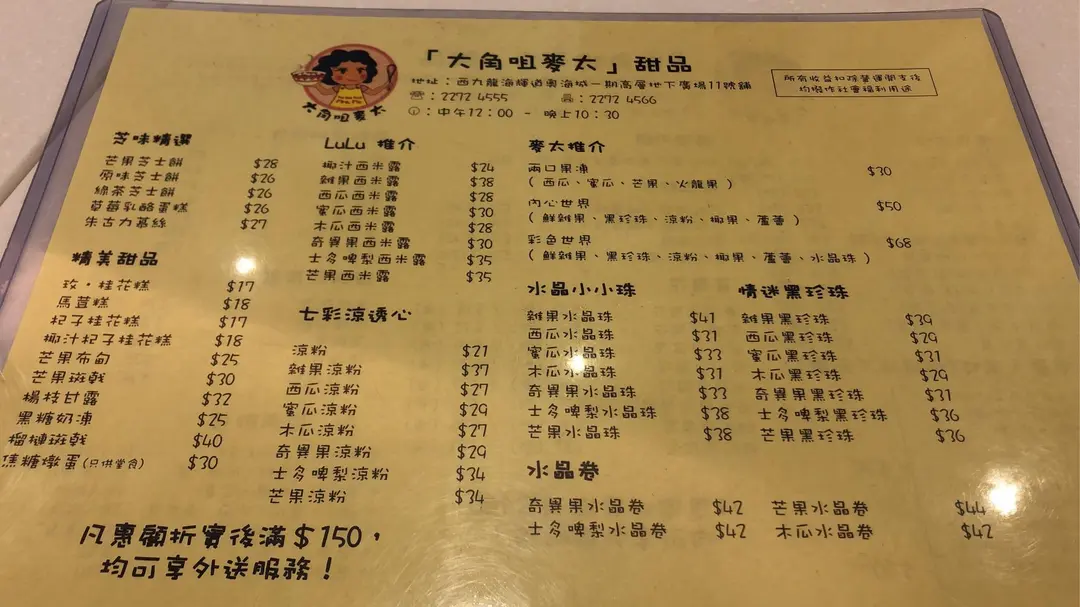 「大角咀麥太」甜品
地址：西九龍海輝道奧海城一期高層地下廣場11號舖
：2272 4555 ：2272 4566
：中午12：00 - 晚上10：30
所有收益扣除營運開支後
均撥作社會福利用途
大角咀麥太
芝味精選
芒果芝士餅 $28
原味芝士餅 $26
綠茶芝士餅 $26
草莓乳酪蛋糕 $26
朱古力慕絲 $27
精美甜品
玫・桂花糕 $17
馬荳糕 $18
杞子桂花糕 $17
椰汁杞子桂花糕 $18
芒果布甸 $25
芒果斑戟 $30
楊枝甘露 $32
黑糖奶凍 $25
榴槤斑戟 $40
焦糖燉蛋(只供堂食) $30
LuLu 推介
椰汁西米露 $24
雜果西米露 $38
西瓜西米露 $28
蜜瓜西米露 $30
木瓜西米露 $28
奇異果西米露 $30
士多啤梨西米露 $35
芒果西米露 $35
七彩涼透心
涼粉 $21
雜果涼粉 $37
西瓜涼粉 $27
蜜瓜涼粉 $29
木瓜涼粉 $27
奇異果涼粉 $29
士多啤梨涼粉 $34
芒果涼粉 $34
麥太推介
兩口果凍 $30
( 西瓜、蜜瓜、芒果、火龍果 )
內心世界 $50
( 鮮雜果、黑珍珠、涼粉、椰果、蘆薈 )
彩色世界 $68
( 鮮雜果、黑珍珠、涼粉、椰果、蘆薈、水晶珠 )
水晶小小珠
雜果水晶珠 $41
西瓜水晶珠 $31
蜜瓜水晶珠 $33
木瓜水晶珠 $31
奇異果水晶珠 $33
士多啤梨水晶珠 $38
芒果水晶珠 $38
情迷黑珍珠
雜果黑珍珠 $39
西瓜黑珍珠 $29
蜜瓜黑珍珠 $31
木瓜黑珍珠 $29
奇異果黑珍珠 $31
士多啤梨黑珍珠 $36
芒果黑珍珠 $36
水晶卷
奇異果水晶卷 $42 芒果水晶卷 $44
士多啤梨水晶卷 $42 木瓜水晶卷 $42
凡惠顧折實後滿$150，
均可享外送服務！